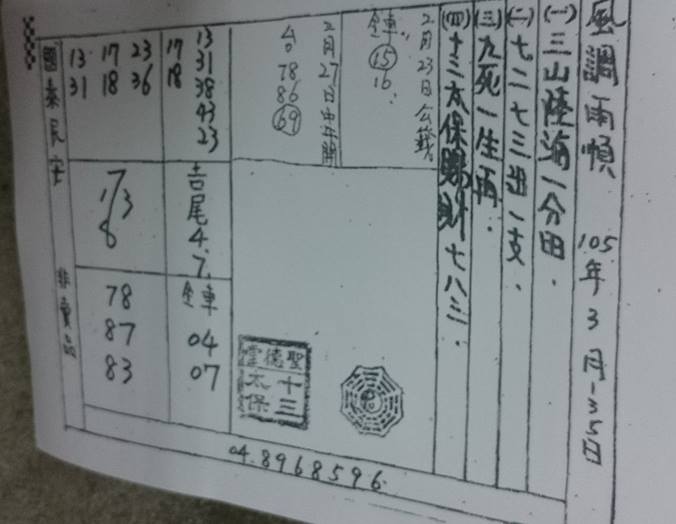 風調雨順 105年3月1-35日
(一)三山陸海一分田.
(二)七二七三出一支.
(三)九死一生再.
(四)十三太保賜財七八三.
2月23日公籤
全車 15 16.
2月27日中午開
台 78 86 69
聖德
十三太保
13 31 38 43 23
17 18
23 36
17 18
13 31
吉尾4.7.
7 1/3 8
全車 04 07
78 87 83
國泰民安 非賣品
04.8968596